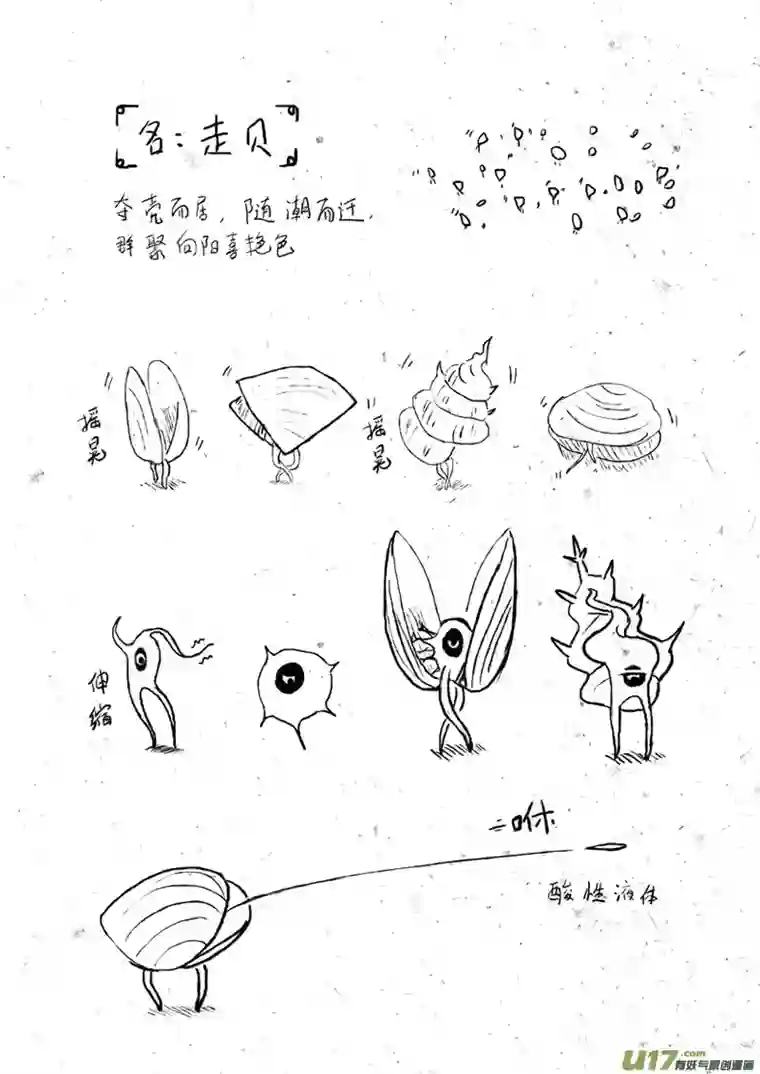 名：走贝
夺壳而居，随潮而迁，
群聚向阳喜艳色
摇晃
摇晃
伸缩
咻
酸性液体
U17.com
有妖气原创漫画